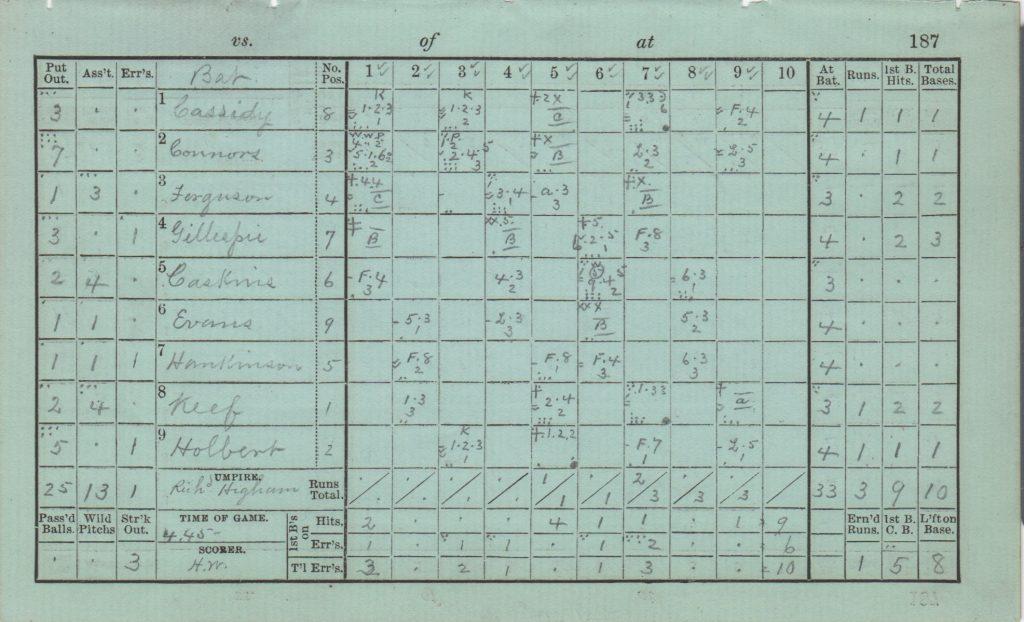 vs. of at 187
Put Out. Ass't. Err's. Bat. No. Pos. 1 2 3 4 5 6 7 8 9 10 At Bat. Runs. 1st B. Hits. Total Bases.
3 · · 1 Cassidy 8 K 1·2·3 1 K 1·2·3 2 F·4 2 4 1 1 1
7 · · 2 Connors 3 B L·3 2 L·5 3 4 · 1 1
1 3 · 3 Ferguson 4 3·4 1 a·3 3 B 3 · 2 2
3 · 1 4 Gillespie 7 B B F·8 3 4 · 2 3
2 4 · 5 Caskins 6 F·4 3 4·3 2 6·3 1 3 · · ·
1 1 · 6 Evans 9 5·3 1 L·3 3 B 5·3 2 4 · · ·
1 1 1 7 Hankinson 5 F·8 2 F·8 1 F·4 3 6·3 3 4 · · ·
2 4 · 8 Keef 1 1·3 3 2·4 2 a 3 1 2 2
5 · 1 9 Holbert 2 K 1·2·3 1 F·7 1 L·5 1 4 1 1 1
25 13 1 UMPIRE. Rich'd Higham Runs Total. 1/1 ·/1 2/3 /3 /3 33 3 9 10
Pass'd Balls. Wild Pitchs Str'k Out. TIME OF GAME. 4.45 1st B's on Hits. 2 · · · 4 1 1 · 1 9 Ern'd Runs. 1st B. C. B. L'ft on Base.
SCORER. Err's. 1 · 1 1 · · 2 · · 6
· · 3 H.W. T'l Err's. 3 · 2 1 · 1 3 · · 10 1 5 8